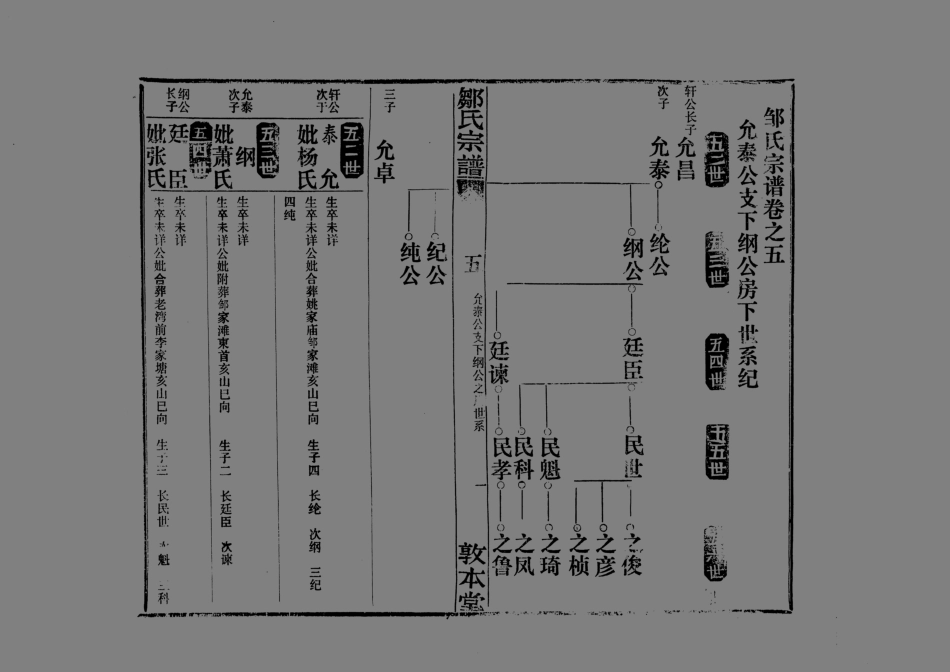 邹氏宗谱卷之五
允泰公支下纲公房下世系纪
五二世
五三世
五四世
五五世
轩公长子
允昌
次子
允泰
纶公
纲公
廷臣
民世
之俊
之彦
之桢
民魁
之琦
民科
之凤
廷谏
民孝
之鲁
鄒氏宗譜
五
允泰公支下纲公之
世系
一
敦本堂
纪公
纯公
三子
允卓
五二世
轩公次子
允泰
妣杨氏
生卒未详
生卒未详公妣合葬姚家庙邹家滩亥山巳向 生子四 长纶 次纲 三纪
四纯
五三世
允泰次子
纲
妣萧氏
生卒未详
生卒未详公妣附葬邹家滩東首亥山巳向 生子二 长廷臣 次谏
五四世
纲公长子
廷臣
妣张氏
生卒未详
生卒未详公妣合葬老湾前李家塘亥山巳向 生子三 长民世 魁 三科